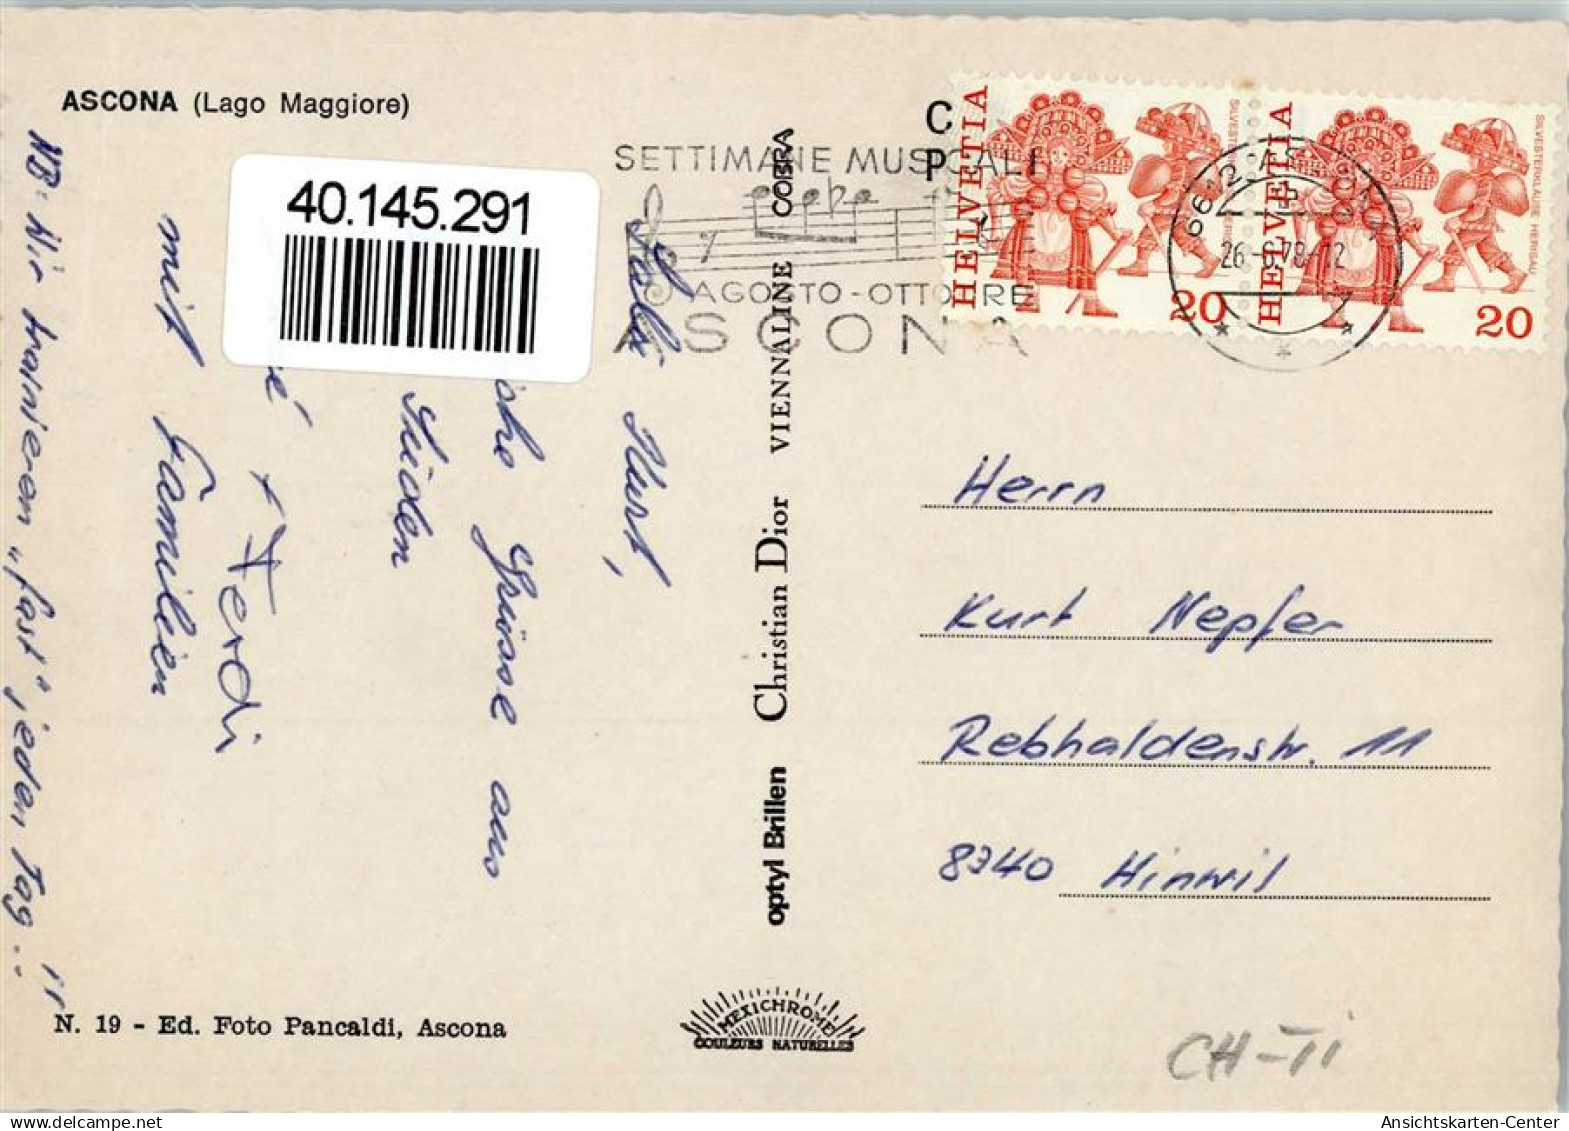 ASCONA (Lago Maggiore)
40.145.291
SETTIMANE MUSICALI
AGOSTO - OTTOBRE
ASCONA
C
P
HELVETIA
20
HELVETIA
SILVESTERKLÄUSE HERISAU
20
26.-6.78-12
Salü Kurt,
Grüsse aus
Süden
Ferdi
mit Familien
NB: Wir trainieren "fast" jeden Tag..!!
optyl Brillen Christian Dior VIENNALINE COBRA
Herrn
Kurt Nepfer
Rebhaldenstr. 11
8340 Hinwil
N. 19 - Ed. Foto Pancaldi, Ascona
MEXICHROME
COULEURS NATURELLES
CH-TI
Ansichtskarten-Center